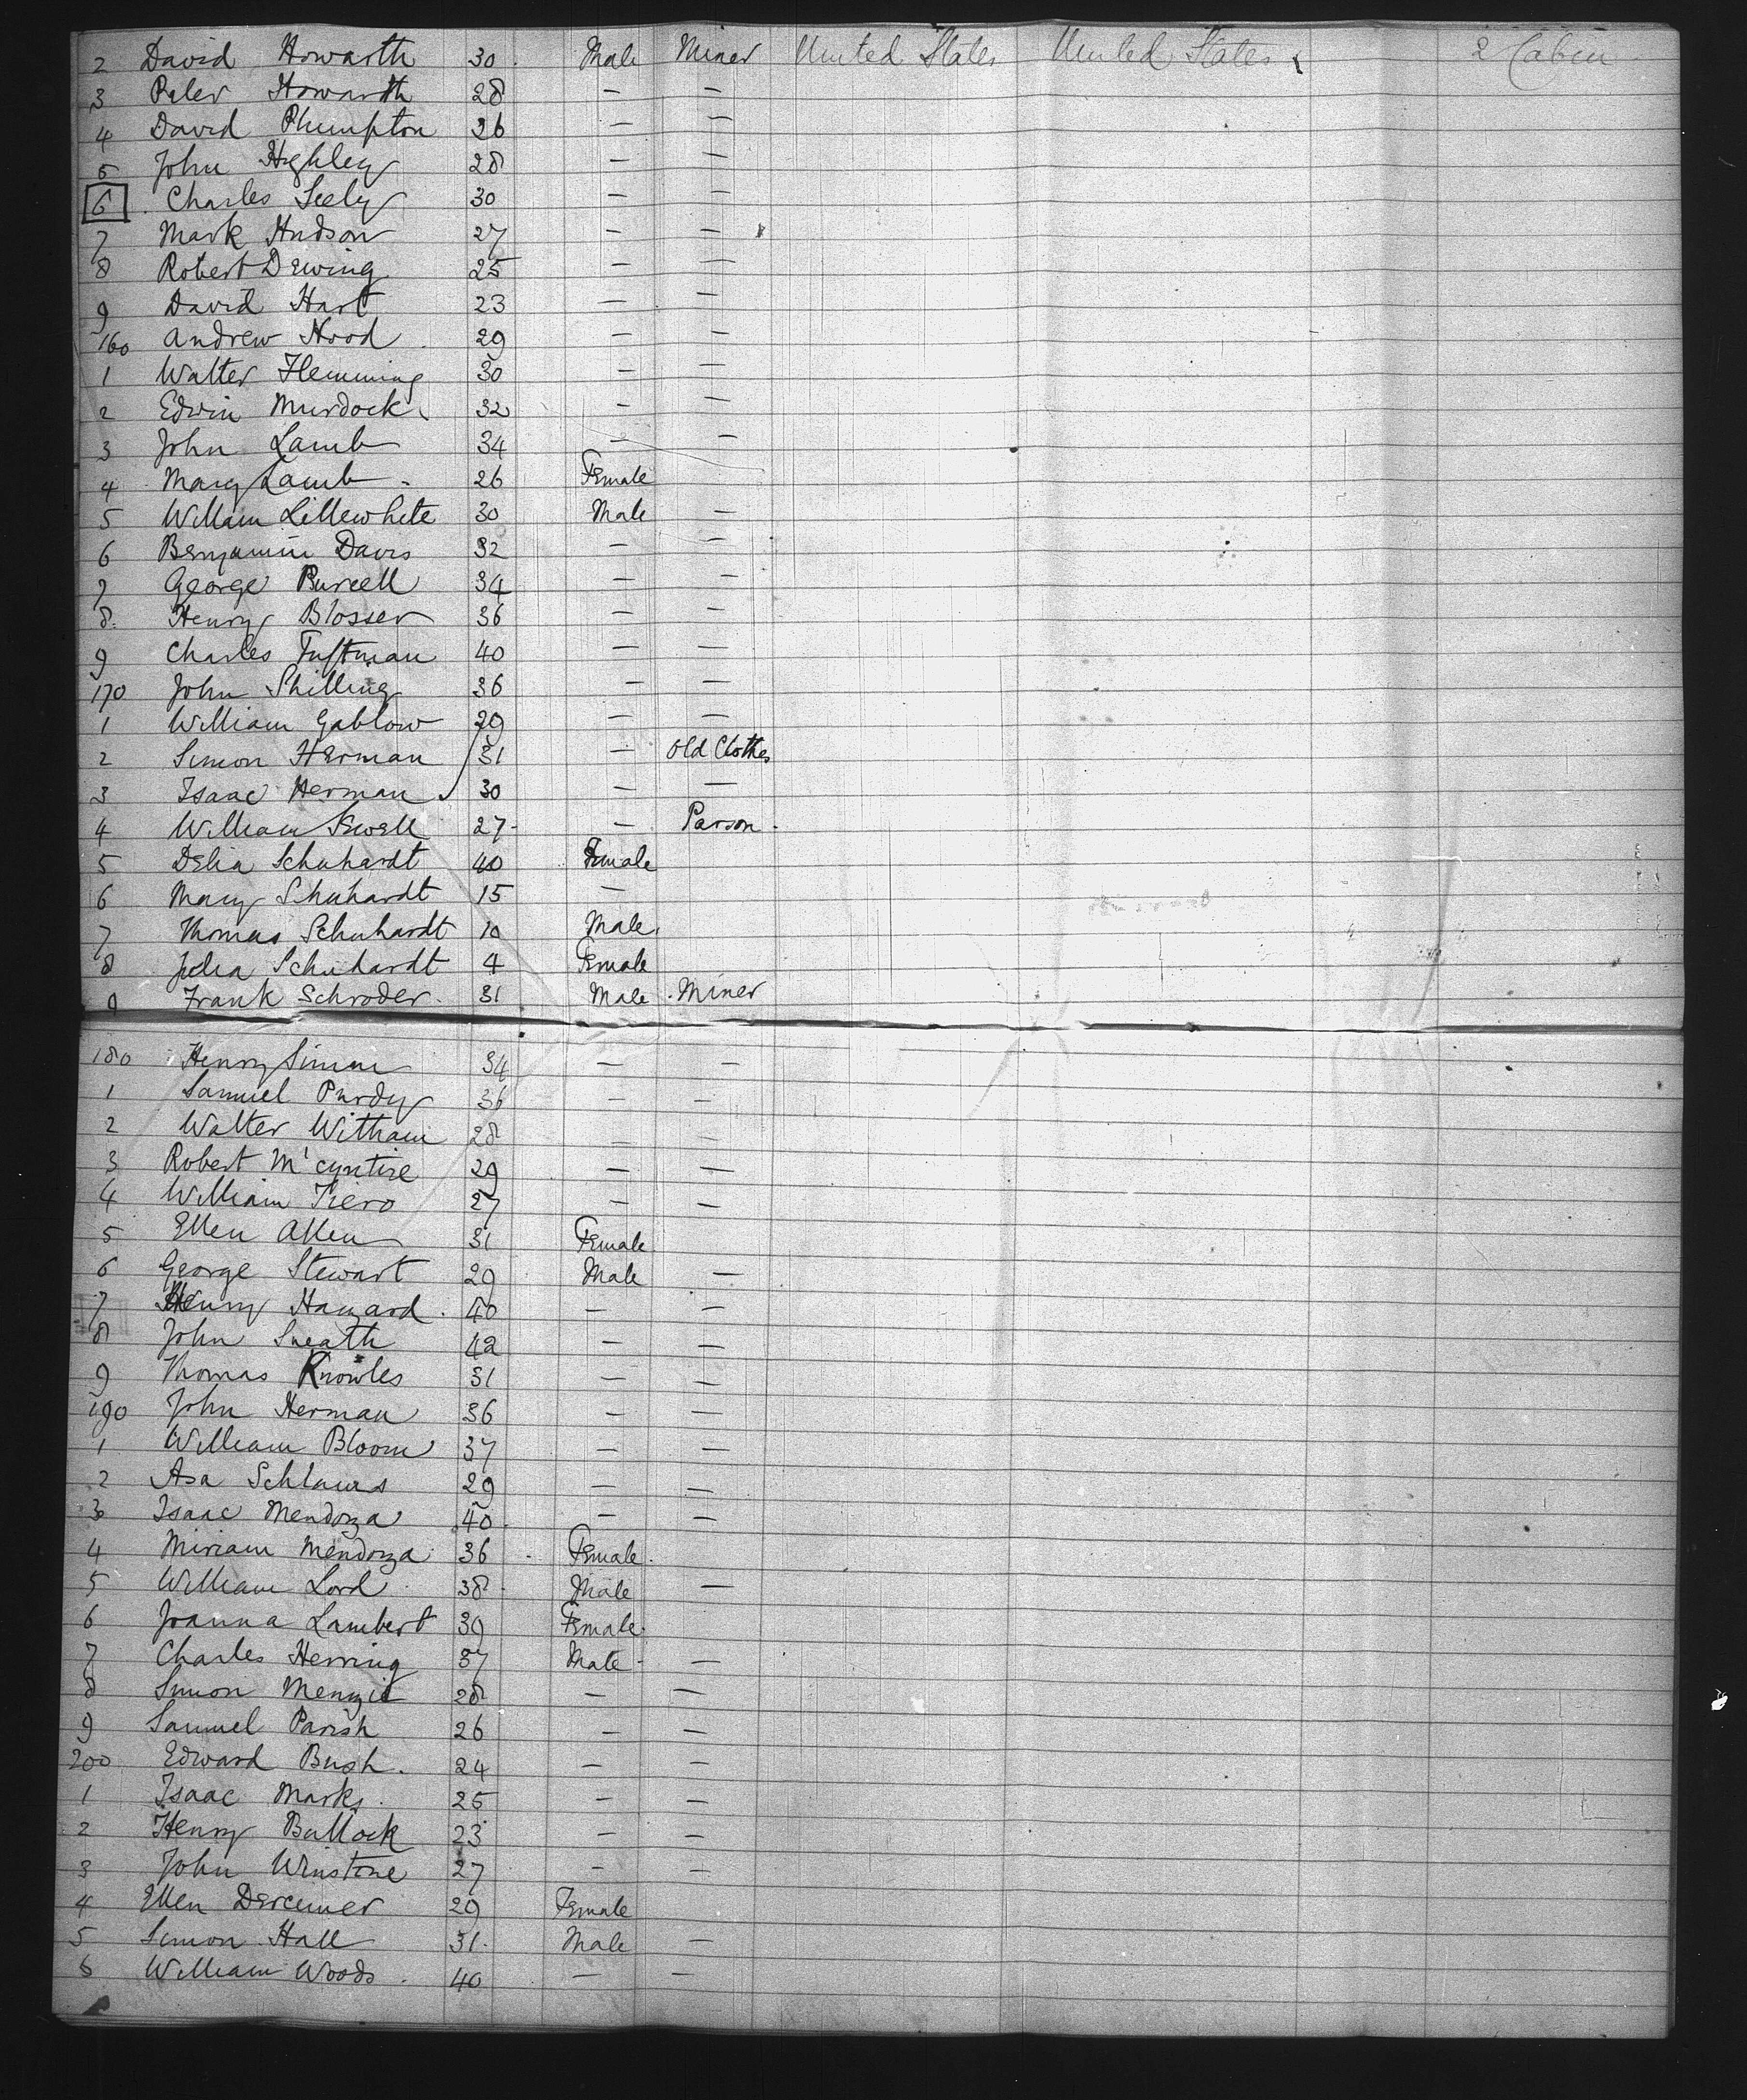 2 David Howarth 30 Male Miner United States United States 2 Cabin
3 Peter Howarth 28 — —
4 David Plumpton 26 — —
5 John Highley 28 — —
6 Charles Seely 30 — —
7 Mark Hudson 27 — —
8 Robert Dewing 25 — —
9 David Hart 23 — —
160 Andrew Hood 29 — —
1 Walter Flemming 30 — —
2 Edwin Murdock 32 — —
3 John Lamb 34 — —
4 Mary Lamb 26 Female
5 William Lillewhite 30 Male —
6 Benjamin Davis 32 — —
7 George Purcell 34 — —
8 Henry Blosser 36 — —
9 Charles Tuftman 40 — —
170 John Shilling 36 — —
1 William Gablow 29 — —
2 Simon Herman 31 — Old Clothes
3 Isaac Herman 30 — —
4 William Sewell 27 — Parson
5 Delia Schuhardt 40 Female
6 Mary Schuhardt 15 —
7 Thomas Schuhardt 10 Male
8 Julia Schuhardt 4 Female
9 Frank Schroder 31 Male Miner
180 Henry Simm 34 — —
1 Samuel Purdy 36 — —
2 Walter Witham 28 — —
3 Robert M'cyntire 29 — —
4 William Tiero 27 — —
5 Ellen Allen 31 Female
6 George Stewart 29 Male —
7 Henry Hazzard 40 — —
8 John Sneath 42 — —
9 Thomas Knowles 31 — —
190 John Herman 36 — —
1 William Bloom 37 — —
2 Asa 29 — —
3 Isaac Mendoza 40 — —
4 Miriam Mendoza 36 Female
5 William Lord 38 Male —
6 Joanna Lambert 39 Female
7 Charles Herring 37 Male —
8 Simon Menzie 28 — —
9 Samuel Parish 26 — —
200 Edward Bush 24 — —
1 Isaac Marks 25 — —
2 Henry Bullock 23 — —
3 John Winstone 27 — —
4 Ellen 29 Female
5 Simon Hall 31 Male —
6 William Woods 40 — —